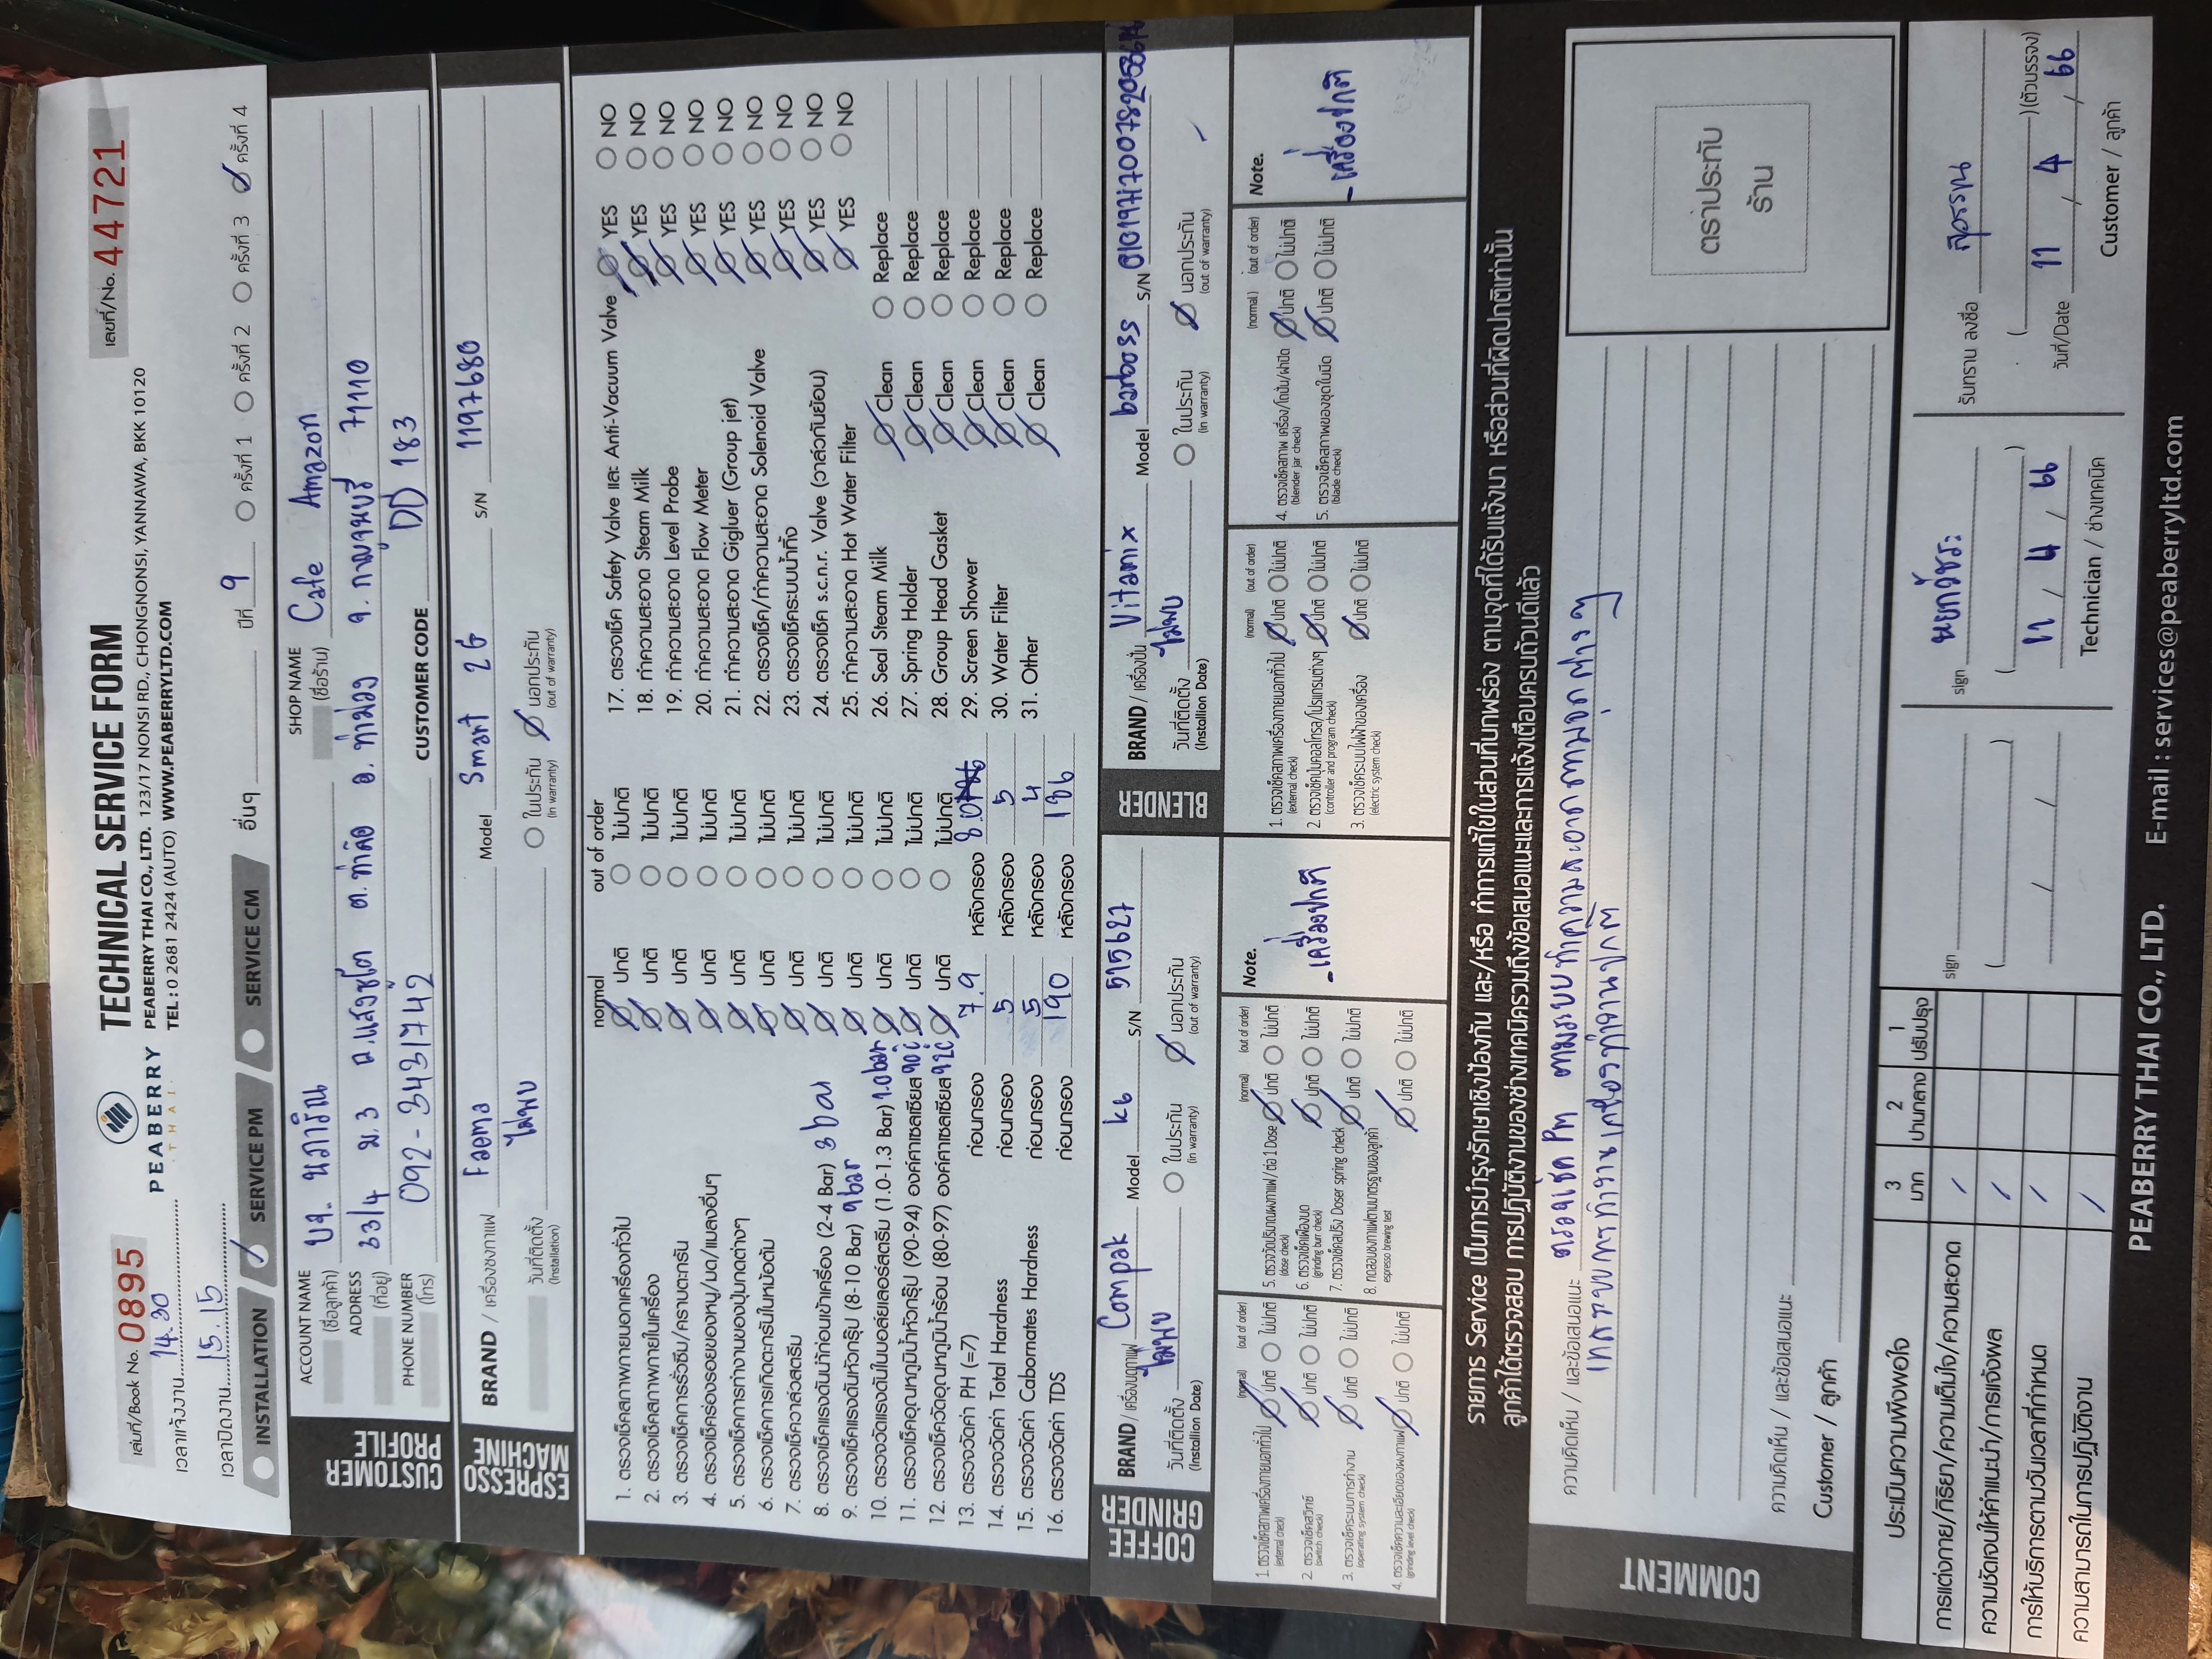 เล่มที่/Book No. 0895
PEABERRY
THAI
TECHNICAL SERVICE FORM
PEABERRY THAI CO., LTD. 123/17 NONSI RD., CHONGNONSI, YANNAWA, BKK 10120
TEL : 0 2681 2424 (AUTO) WWW.PEABERRYLTD.COM
เลขที่/No. 44721
เวลาแจ้งงาน 14.30
เวลาปิดงาน 15.15
INSTALLATION SERVICE PM SERVICE CM อื่นๆ ปีที่ 9 ครั้งที่ 1 ครั้งที่ 2 ครั้งที่ 3 ครั้งที่ 4
CUSTOMER PROFILE
ACCOUNT NAME (ชื่อลูกค้า) บจ. นภาริณ SHOP NAME (ชื่อร้าน) Cafe Amazon
ADDRESS (ที่อยู่) 33/4 ม.3 ถ.แสงชูโต ต.ท่าล้อ อ.ท่าม่วง จ.กาญจนบุรี 71110
PHONE NUMBER (โทร) 092-3431742 CUSTOMER CODE DD 183
ESPRESSO MACHINE
BRAND / เครื่องชงกาแฟ Faema Model Smart 2G S/N 1197680
วันที่ติดตั้ง (Installation) ไม่พบ ในประกัน (in warranty) นอกประกัน (out of warranty)
normal out of order
1. ตรวจเช็คสภาพภายนอกเครื่องทั่วไป ปกติ ไม่ปกติ
2. ตรวจเช็คสภาพภายในเครื่อง ปกติ ไม่ปกติ
3. ตรวจเช็คการรั่วซึม/คราบตะกรัน ปกติ ไม่ปกติ
4. ตรวจเช็คร่องรอยของหนู/มด/แมลงอื่นๆ ปกติ ไม่ปกติ
5. ตรวจเช็คการทำงานของปุ่มกดต่างๆ ปกติ ไม่ปกติ
6. ตรวจเช็คการเกิดตะกรันในหม้อต้ม ปกติ ไม่ปกติ
7. ตรวจเช็ควาล์วสตรีม ปกติ ไม่ปกติ
8. ตรวจเช็คแรงดันน้ำก่อนเข้าเครื่อง (2-4 Bar) 3 bar ปกติ ไม่ปกติ
9. ตรวจเช็คแรงดันหัวกรุ๊ป (8-10 Bar) 9 bar ปกติ ไม่ปกติ
10. ตรวจวัดแรงดันในบอล์ยเลอร์สตรีม (1.0-1.3 Bar) 1.0 bar ปกติ ไม่ปกติ
11. ตรวจเช็คอุณหภูมิน้ำหัวกรุ๊ป (90-94) องค์ศาเซลเซียส 90 c ปกติ ไม่ปกติ
12. ตรวจเช็ควัดอุณหภูมิน้ำร้อน (80-97) องค์ศาเซลเซียส 92 c ปกติ ไม่ปกติ
13. ตรวจวัดค่า PH (=7) ก่อนกรอง 7.9 หลังกรอง 8.0
14. ตรวจวัดค่า Total Hardness ก่อนกรอง 5 หลังกรอง 5
15. ตรวจวัดค่า Cabornates Hardness ก่อนกรอง 5 หลังกรอง 4
16. ตรวจวัดค่า TDS ก่อนกรอง 190 หลังกรอง 186
17. ตรวจเช็ค Safety Valve และ Anti-Vacuum Valve YES NO
18. ทำความสะอาด Steam Milk YES NO
19. ทำความสะอาด Level Probe YES NO
20. ทำความสะอาด Flow Meter YES NO
21. ทำความสะอาด Gigluer (Group jet) YES NO
22. ตรวจเช็ค/ทำความสะอาด Solenoid Valve YES NO
23. ตรวจเช็คระบบน้ำทิ้ง YES NO
24. ตรวจเช็ค s.c.n.r. Valve (วาล์วกันย้อน) YES NO
25. ทำความสะอาด Hot Water Filter YES NO
26. Seal Steam Milk Clean Replace
27. Spring Holder Clean Replace
28. Group Head Gasket Clean Replace
29. Screen Shower Clean Replace
30. Water Filter Clean Replace
31. Other Clean Replace
COFFEE GRINDER
BRAND / เครื่องบดกาแฟ Compak Model k6 S/N 515627
วันที่ติดตั้ง (Installion Date) ไม่พบ ในประกัน (in warranty) นอกประกัน (out of warranty)
BLENDER
BRAND / เครื่องปั่น Vitamix Model barboss S/N
วันที่ติดตั้ง (Installion Date) ไม่พบ ในประกัน (in warranty) นอกประกัน (out of warranty)
(normal) (out of order)
1. ตรวจเช็คสภาพเครื่องภายนอกทั่วไป (external check) ปกติ ไม่ปกติ
2. ตรวจเช็คสวิทช์ (switch check) ปกติ ไม่ปกติ
3. ตรวจเช็คระบบการทำงาน (operating system check) ปกติ ไม่ปกติ
4. ตรวจเช็คความละเอียดของผงกาแฟ (grinding level check) ปกติ ไม่ปกติ
(normal) (out of order)
5. ตรวจวัดปริมาณผงกาแฟ/ต่อ 1 Dose (dose check) ปกติ ไม่ปกติ
6. ตรวจเช็คเฟืองบด (grinding burr check) ปกติ ไม่ปกติ
7. ตรวจเช็คสปริง Doser spring check ปกติ ไม่ปกติ
8. ทดสอบชงกาแฟตามมาตรฐานของลูกค้า espresso brewing test ปกติ ไม่ปกติ
Note.
- เครื่องปกติ
(normal) (out of order)
1. ตรวจเช็คสภาพเครื่องภายนอกทั่วไป (external check) ปกติ ไม่ปกติ
2. ตรวจเช็คปุ่มคอลโทรล/โปรแกรมต่างๆ (controller and program check) ปกติ ไม่ปกติ
3. ตรวจเช็คระบบไฟฟ้าของเครื่อง (electric system check) ปกติ ไม่ปกติ
(normal) (out of order)
4. ตรวจเช็คสภาพ เครื่อง/โถปั่น/ฝาปิด (blender jar check) ปกติ ไม่ปกติ
5. ตรวจเช็คสภาพของชุดใบมีด (blade check) ปกติ ไม่ปกติ
Note.
- เครื่องปกติ
รายการ Service เป็นการบำรุงรักษาเชิงป้องกัน และ/หรือ ทำการแก้ไขในส่วนที่บกพร่อง ตามจุดที่ได้รับแจ้งมา หรือส่วนที่ผิดปกติเท่านั้น
ลูกค้าได้ตรวจสอบ การปฏิบัติงานของช่างเทคนิครวมถึงข้อเสนอแนะและการแจ้งเตือนครบถ้วนดีแล้ว
COMMENT
ความคิดเห็น / และข้อเสนอแนะ ตรวจเช็ค Pm ตามระบบทำความสะอาดตามจุดต่างๆ
เทสระบบการทำงานเครื่องทำงานปกติ
ความคิดเห็น / และข้อเสนอแนะ
Customer / ลูกค้า
ตราประทับ
ร้าน
ประเมินความพึงพอใจ 3 มาก 2 ปานกลาง 1 ปรับปรุง
การแต่งกาย/กิริยา/ความเต็มใจ/ความสะอาด /
ความชัดเจนให้คำแนะนำ/การแจ้งผล /
การให้บริการตามวันเวลาที่กำหนด /
ความสามารถในการปฏิบัติงาน /
sign
( )
/ /
sign หยกวัชระ
( )
11 / 4 / 66
Technician / ช่างเทคนิค
รับทราบ ลงชื่อ
( ) (ตัวบรรจง)
วันที่/Date 11 / 4 / 66
Customer / ลูกค้า
PEABERRY THAI CO., LTD. E-mail : services@peaberryltd.com